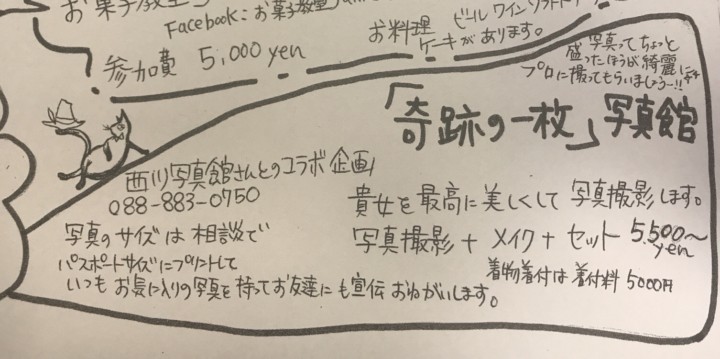 お菓子教室
Facebook: お菓子教室
参加費 5,000yen
お料理
ビール ワイン ソフトドリ
ケーキがあります。
写真ってちょっと
盛ったほうが綺麗
プロに撮ってもらいましょう〜!!
「奇跡の一枚」写真館
西川写真館さんとのコラボ企画!
088-883-0750
貴女を最高に美しくして写真撮影します。
写真のサイズは相談で
写真撮影 + メイク + セット 5,500〜
yen
パスポートサイズにプリントして
着物着付は着付料 5000円
いつもお気に入りの写真を持ってお友達にも宣伝おねがいします。